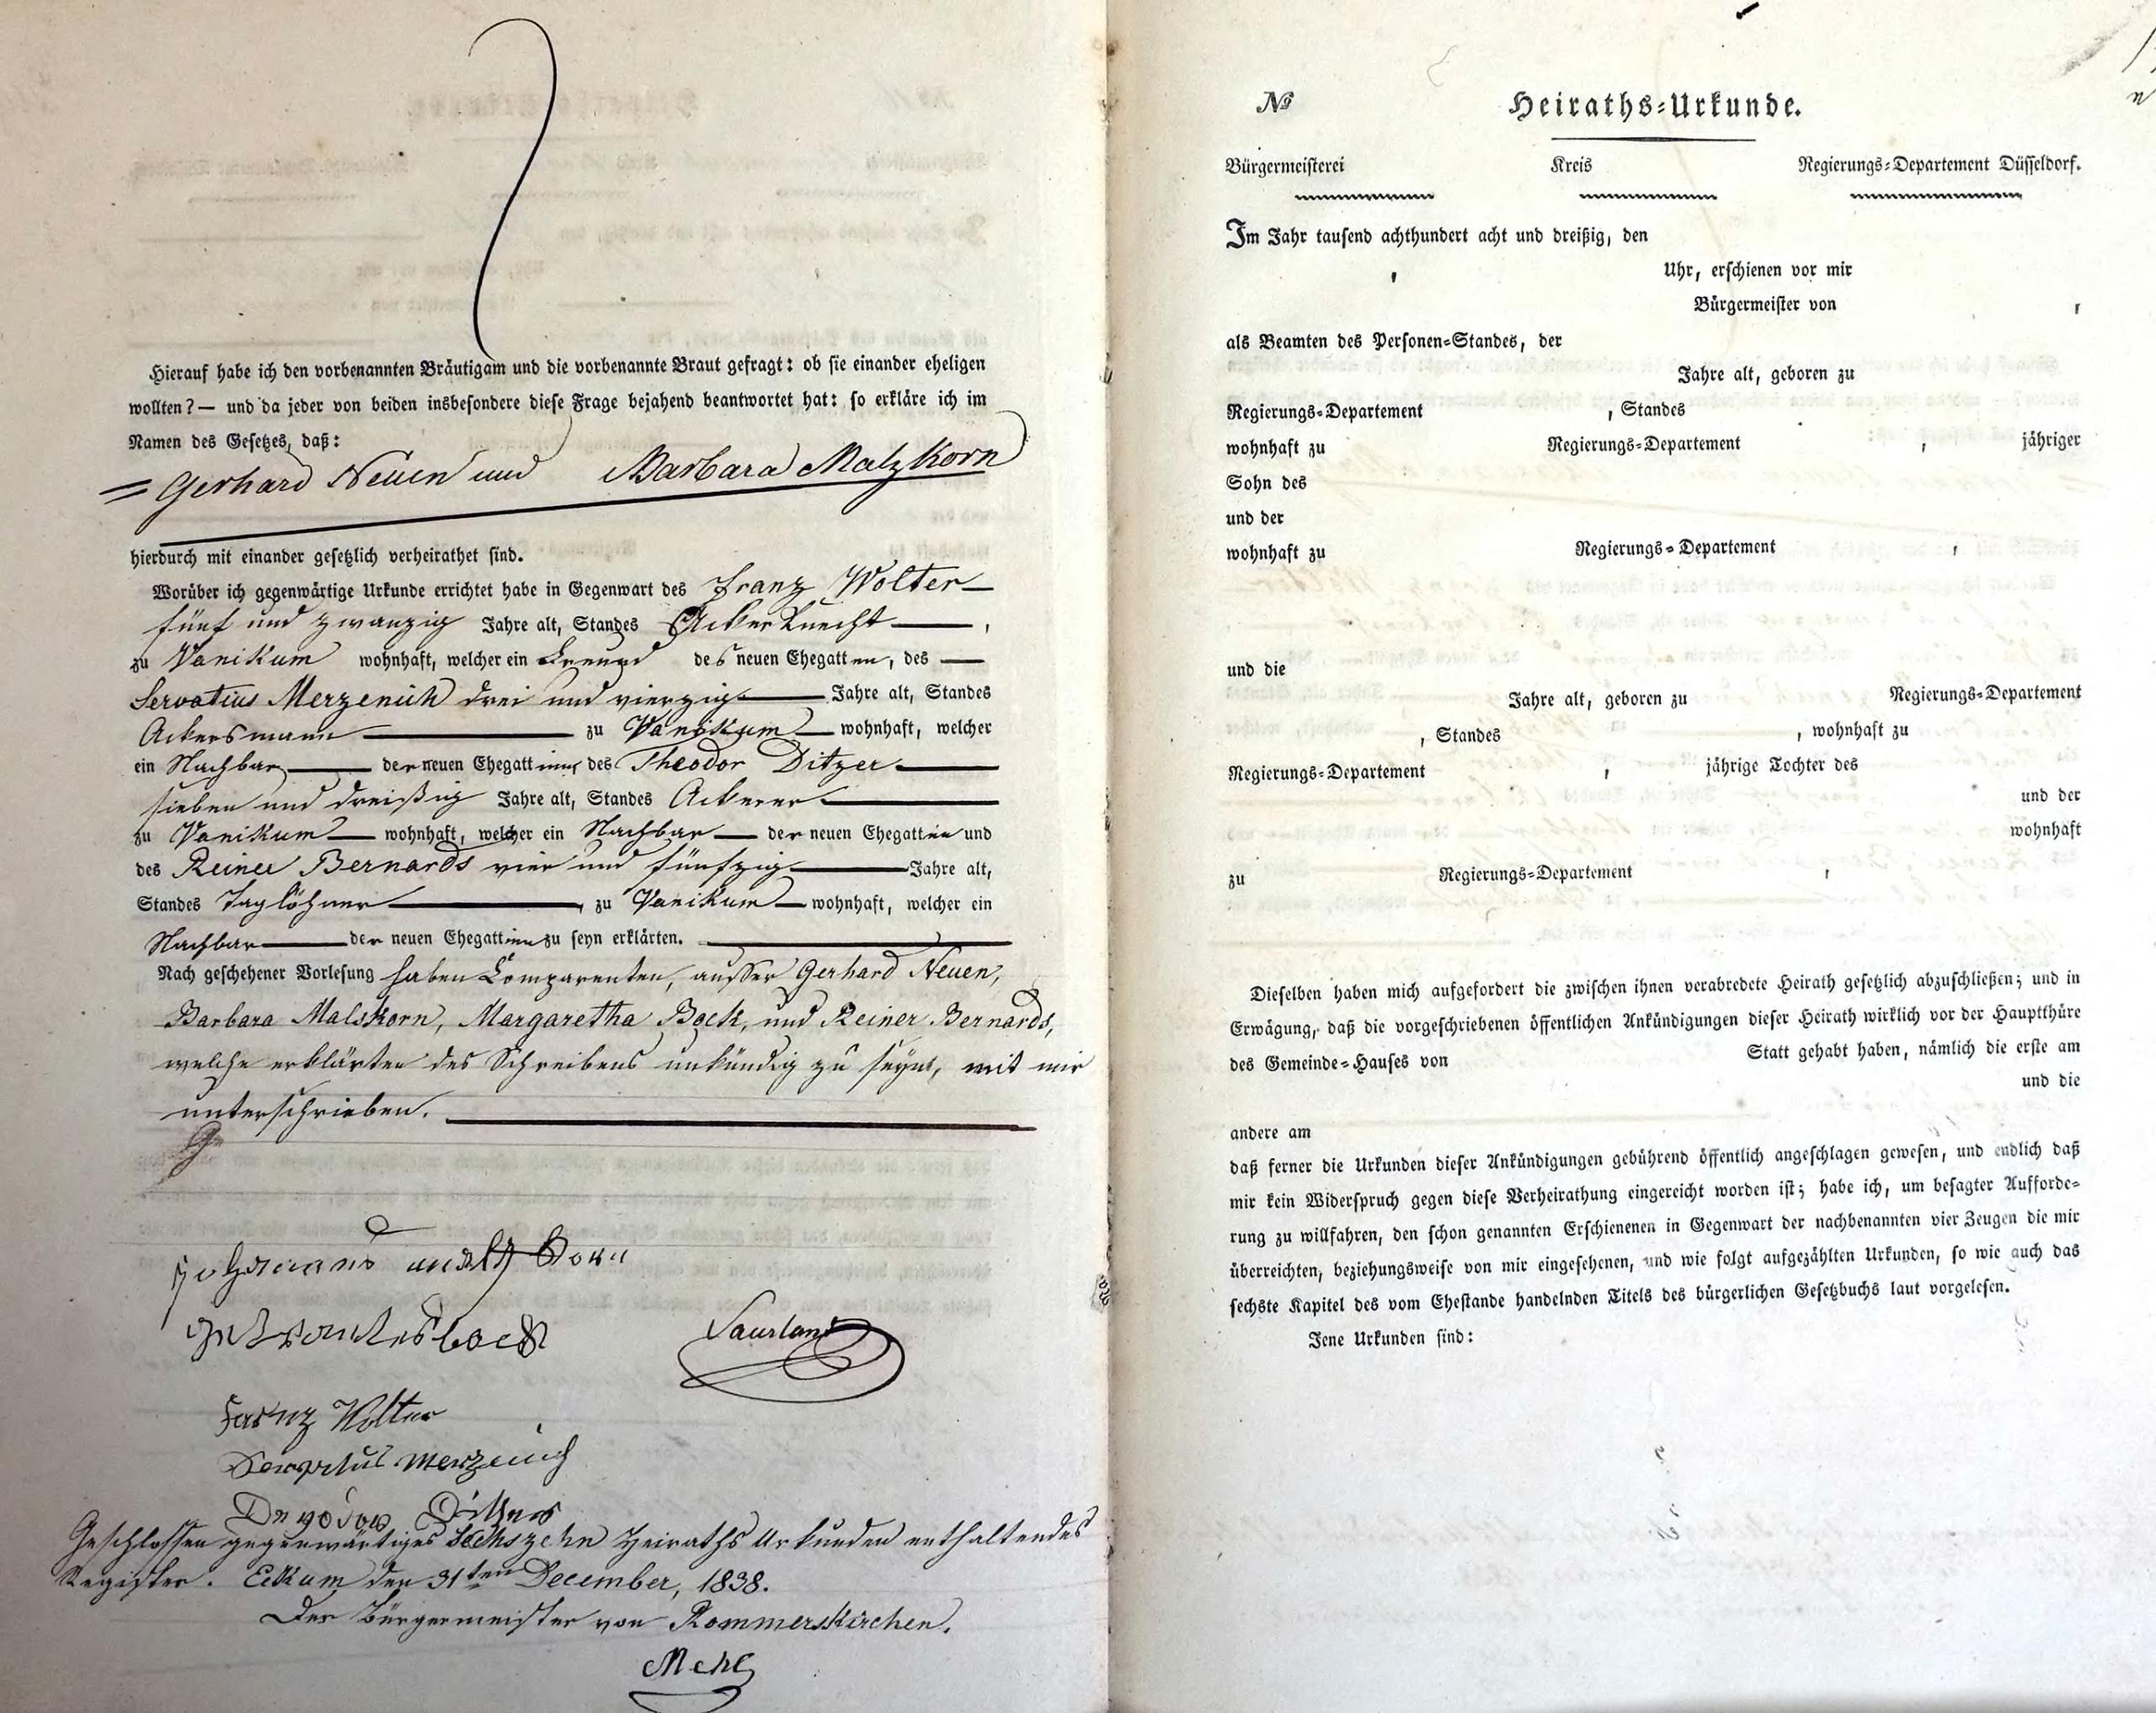 Hierauf habe ich den vorbenannten Bräutigam und die vorbenannte Braut gefragt: ob sie einander eheligen
wollten? — und da jeder von beiden insbesondere diese Frage bejahend beantwortet hat: so erkläre ich im
Namen des Gesetzes, daß:
= Gerhard Neuen und Barbara Malzkorn
hierdurch mit einander gesetzlich verheirathet sind.
Worüber ich gegenwärtige Urkunde errichtet habe in Gegenwart des Franz Wolter —
fünf und zwanzig Jahre alt, Standes Ackerknecht — ,
zu Vanikum wohnhaft, welcher ein Freund des neuen Ehegatten, des —
Servatius Merzenich drei und vierzig — Jahre alt, Standes
Ackersmann — zu Vanikum — wohnhaft, welcher
ein Nachbar — der neuen Ehegattinn, des Theodor Ditzer —
sieben und dreißig Jahre alt, Standes Ackerer —
zu Vanikum — wohnhaft, welcher ein Nachbar — der neuen Ehegattin und
des Reiner Bernards vier und fünfzig — Jahre alt,
Standes Taglöhner — , zu Vanikum — wohnhaft, welcher ein
Nachbar — der neuen Ehegattinn zu seyn erklärten. —
Nach geschehener Vorlesung haben Comparenten, ausser Gerhard Neuen,
Barbara Malskorn, Margaretha Bock, und Reiner Bernards,
welche erklärten des Schreibens unkündig zu seyn, mit mir
unterschrieben. —
Ge
Saurland
Franz Wolter
Servatius Merzenich
Geschlossen gegenwärtiges sechszehn Heiraths Urkunden enthaltendes
Register. Eckum den 31ten December, 1838.
Der Bürgermeister von Rommerskirchen.
№ Heiraths-Urkunde.
Bürgermeisterei Kreis Regierungs-Departement Düsseldorf.
Im Jahr tausend achthundert acht und dreißig, den
, Uhr, erschienen vor mir
Bürgermeister von ,
als Beamten des Personen-Standes, der
Jahre alt, geboren zu
Regierungs-Departement , Standes
wohnhaft zu Regierungs-Departement , jähriger
Sohn des
und der
wohnhaft zu Regierungs-Departement ,
und die
Jahre alt, geboren zu Regierungs-Departement
, Standes , wohnhaft zu
Regierungs-Departement , jährige Tochter des
und der
wohnhaft
zu Regierungs-Departement ,
Dieselben haben mich aufgefordert die zwischen ihnen verabredete Heirath gesetzlich abzuschließen; und in
Erwägung, daß die vorgeschriebenen öffentlichen Ankündigungen dieser Heirath wirklich vor der Hauptthüre
des Gemeinde-Hauses von Statt gehabt haben, nämlich die erste am
und die
andere am
daß ferner die Urkunden dieser Ankündigungen gebührend öffentlich angeschlagen gewesen, und endlich daß
mir kein Widerspruch gegen diese Verheirathung eingereicht worden ist; habe ich, um besagter Aufforde-
rung zu willfahren, den schon genannten Erschienenen in Gegenwart der nachbenannten vier Zeugen die mir
überreichten, beziehungsweise von mir eingesehenen, und wie folgt aufgezählten Urkunden, so wie auch das
sechste Kapitel des vom Ehestande handelnden Titels des bürgerlichen Gesetzbuchs laut vorgelesen.
Jene Urkunden sind: